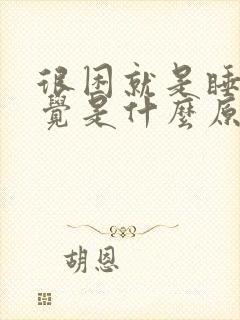 很困就是睡
覺是什麼原
胡恩